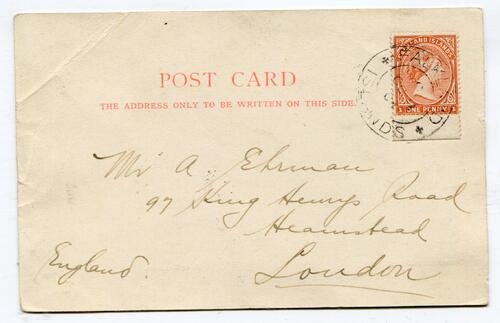 POST CARD
THE ADDRESS ONLY TO BE WRITTEN ON THIS SIDE.
LAND ISLANDS
1 ONE PENNY 1
ISLANDS
Mr A Ehrman
97 King Henrys Road
Heamstead
London
England.